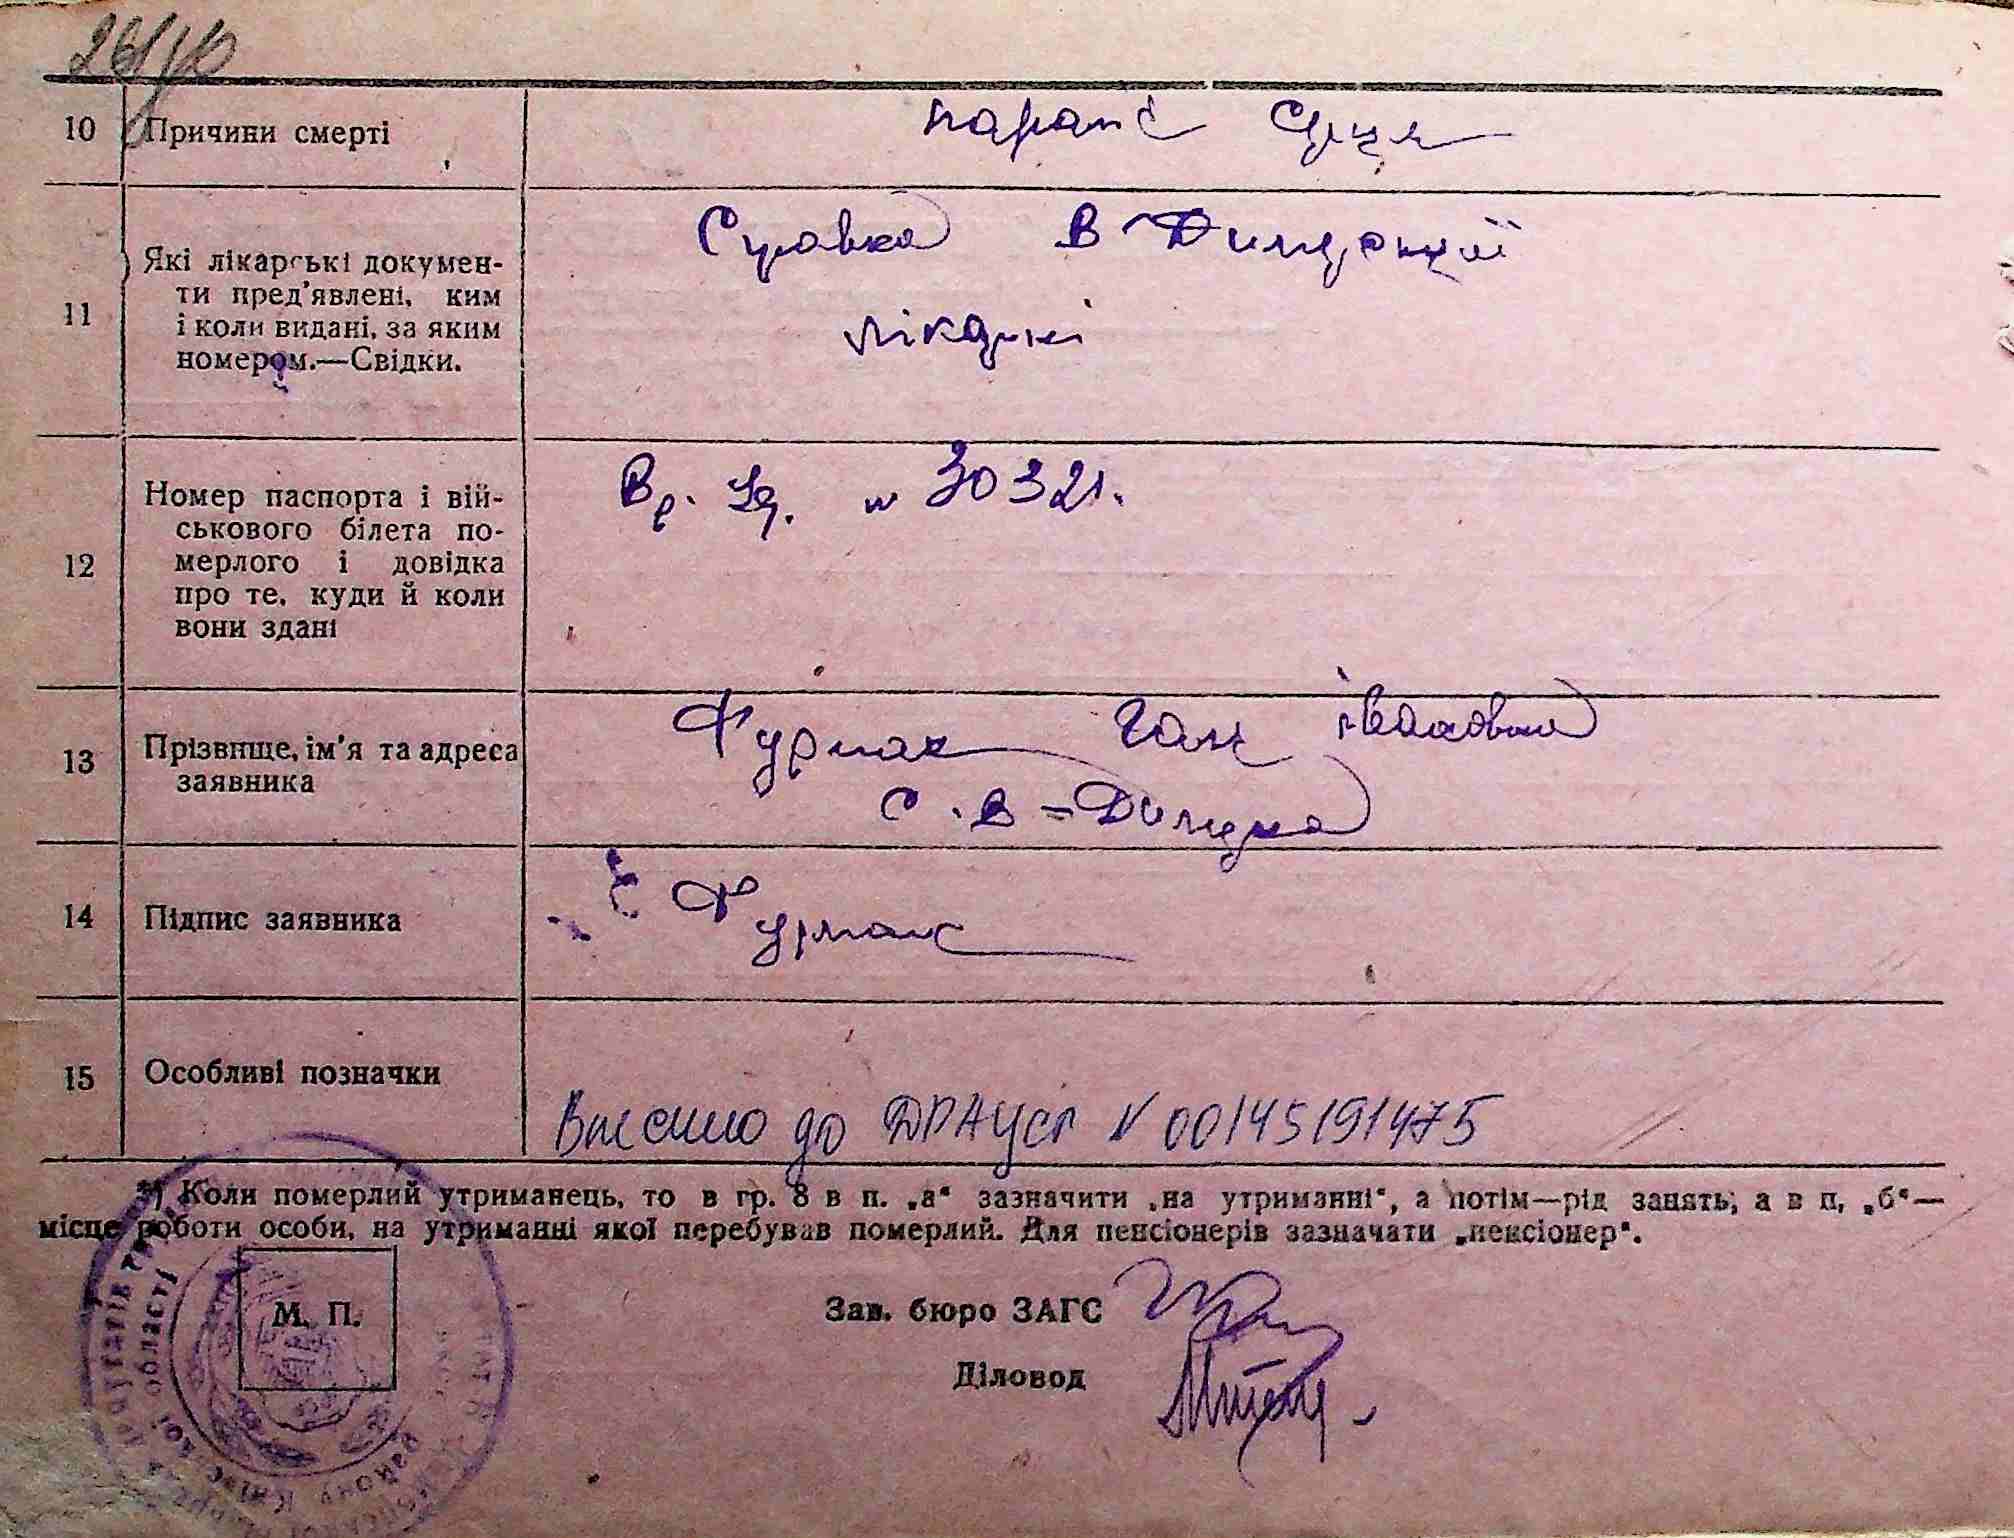 10 Причини смерті
параліч серця
11 Які лікарські докумен-
ти пред'явлені, ким
і коли видані, за яким
номером.—Свідки.
Справка В-Димерської
лікарні
12 Номер паспорта і вій-
ськового білета по-
мерлого і довідка
про те, куди й коли
вони здані
Вр. уд. № 30321.
13 Прізвище, ім'я та адреса
заявника
Фурман Іванович
с. В-Димерка
14 Підпис заявника
Фурман
15 Особливі позначки
Внесено до ДРАЦСГ № 00145191475
*) Коли померлий утриманець, то в гр. 8 в п. „а“ зазначити „на утриманні“, а потім—рід занять; а в п. „б“—
місце роботи особи, на утриманні якої перебував померлий. Для пенсіонерів зазначати „пенсіонер“.
М. П.
Зав. бюро ЗАГС
Діловод
області
району Київської